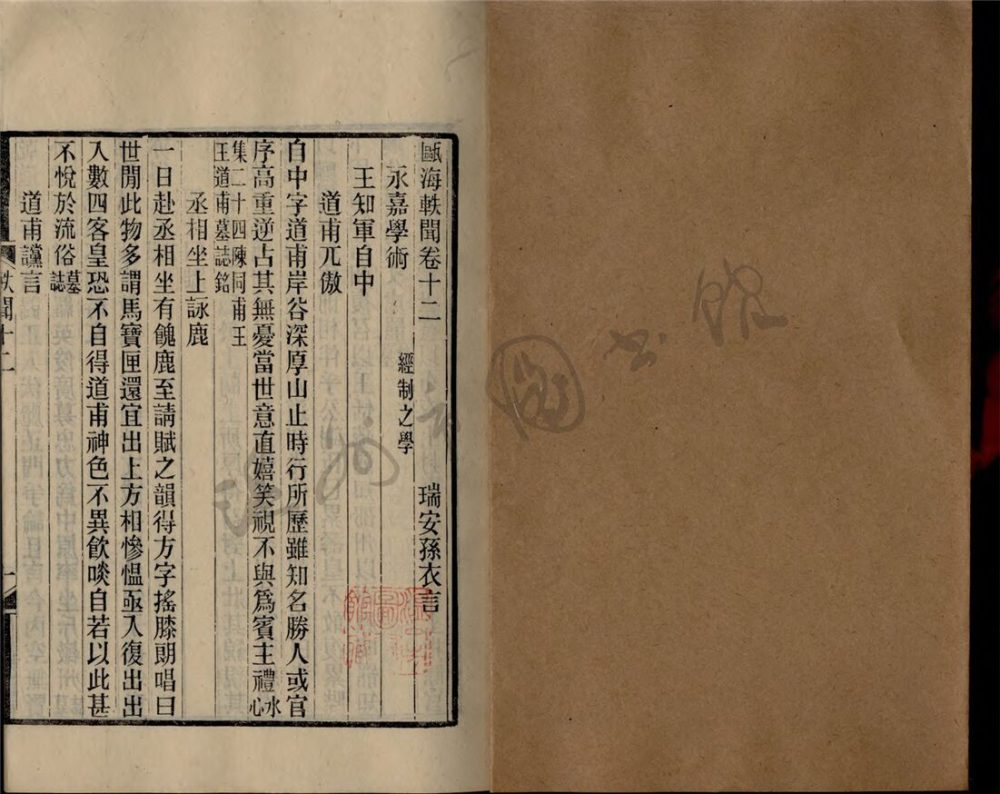 甌海軼聞卷十二　瑞安孫衣言
永嘉學術　經制之學
王知軍自中
道甫兀傲
自中字道甫岸谷深厚山止時行所歷雖知名勝人或官
序高重逆占其無憂當世意直嬉笑視不與爲賓主禮水心
集二十四陳同甫王
王道甫墓誌銘
丞相坐上詠鹿
一日赴丞相坐有餽鹿至請賦之韻得方字搖膝朗唱曰
世閒此物多謂馬寶匣還宜出上方相慘愠亟入復出出
入數四客皇恐不自得道甫神色不異飲啖自若以此甚
不悅於流俗墓誌
道甫讜言
軼聞十二